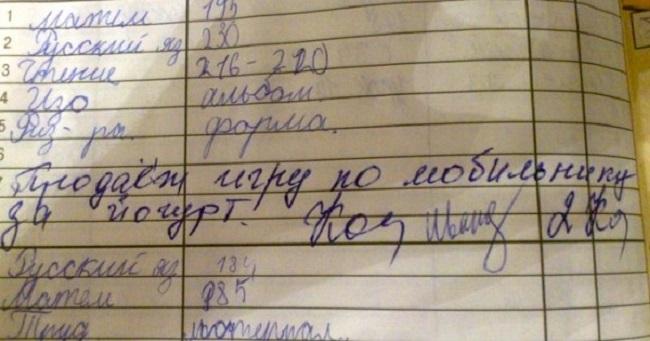 1 Матем 195
2 Русский яз 230
3 Чтение 216-220
4 Изо альбом.
5 Физ-ра. форма.
6
Продаёт игру по мобильнику
за йогурт.
Русский яз 184
Матем 985
Труд материал.